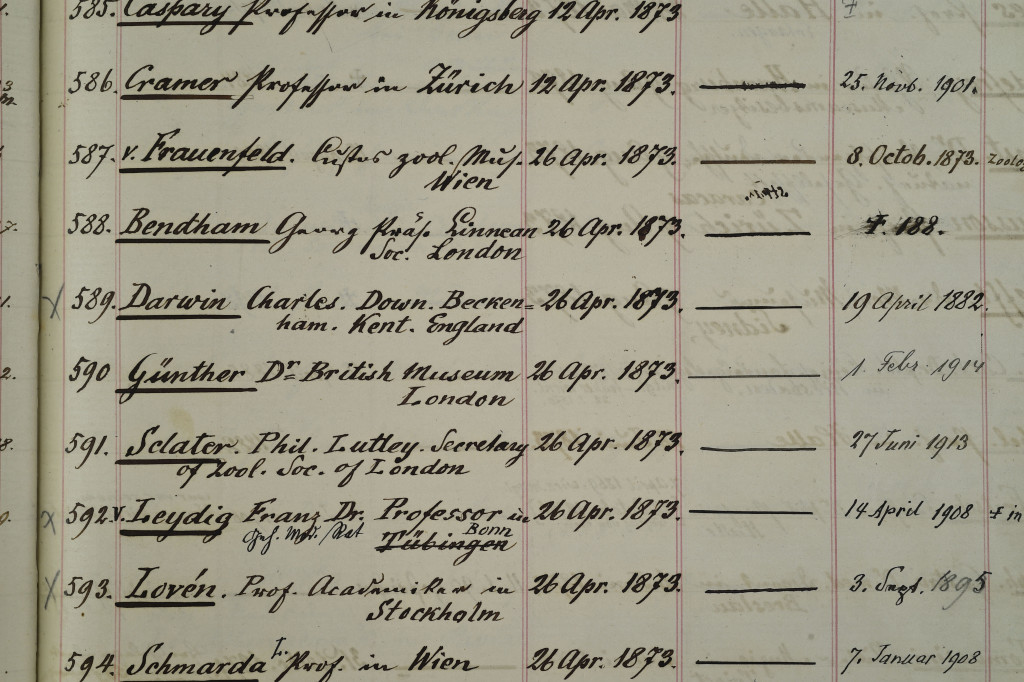 585. Caspary Professor in Königsberg 12 Apr. 1873
586. Cramer Professor in Zürich 12 Apr. 1873. 25. Novb. 1901.
587. v. Frauenfeld. Custos zool. Mus. 26 Apr. 1873. 8. Octob. 1873.
Wien
588. Bendtham Georg Präs. Linnean 26 Apr. 1873. 188.
Soc. London
589. Darwin Charles. Down. Becken= 26 Apr. 1873. 19 April 1882.
ham. Kent. England
590 Günther Dr British Museum 26 Apr. 1873. 1. Febr. 1914
London
591. Sclater. Phil. Lutley. Secretary 26 Apr. 1873. 27 Juni 1913
of Zool. Soc. of London
592. v. Leydig Franz Dr. Professor in 26 Apr. 1873. 14 April 1908 in
Geh. Rat Bonn
Tübingen
593. Lovén. Prof. Academiker in 26 Apr. 1873. 3. Sept. 1895
Stockholm
594. Schmarda L. Prof. in Wien 26 Apr. 1873. 7. Januar 1908